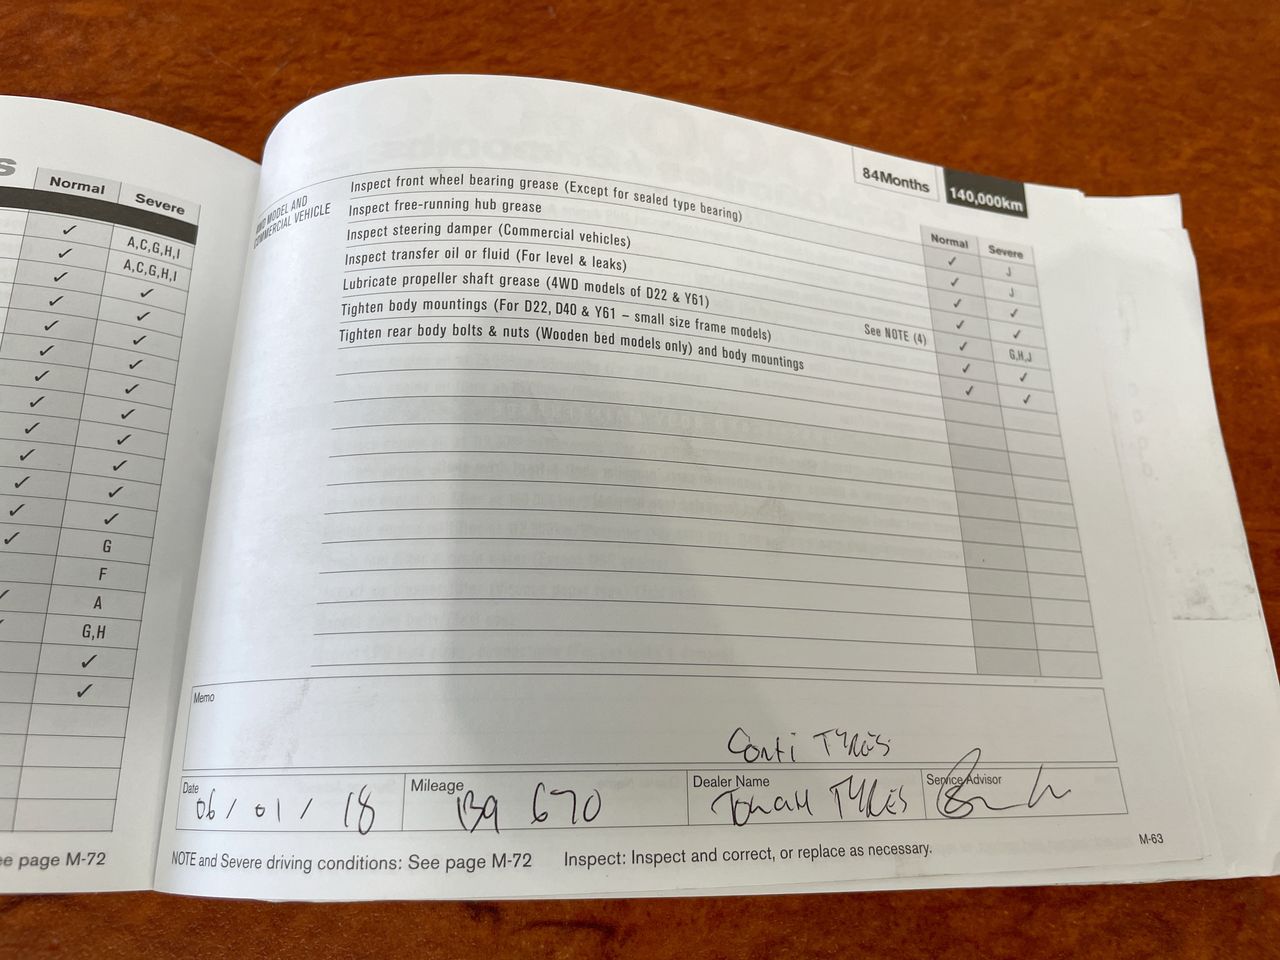 S
Normal Severe
A,C,G,H,I
A,C,G,H,I
G
F
A
G,H
ee page M-72
84Months 140,000km
Normal Severe
MODEL AND
COMMERCIAL VEHICLE
Inspect front wheel bearing grease (Except for sealed type bearing) ✓ J
Inspect free-running hub grease ✓ J
Inspect steering damper (Commercial vehicles) ✓ ✓
Inspect transfer oil or fluid (For level & leaks) ✓ ✓
Lubricate propeller shaft grease (4WD models of D22 & Y61) See NOTE (4) ✓ G,H,J
Tighten body mountings (For D22, D40 & Y61 – small size frame models) ✓ ✓
Tighten rear body bolts & nuts (Wooden bed models only) and body mountings ✓ ✓
Memo
Conti TYRES
Date Mileage Dealer Name Service Advisor
06/01/18 139 670 TYRES
NOTE and Severe driving conditions: See page M-72 Inspect: Inspect and correct, or replace as necessary.
M-63